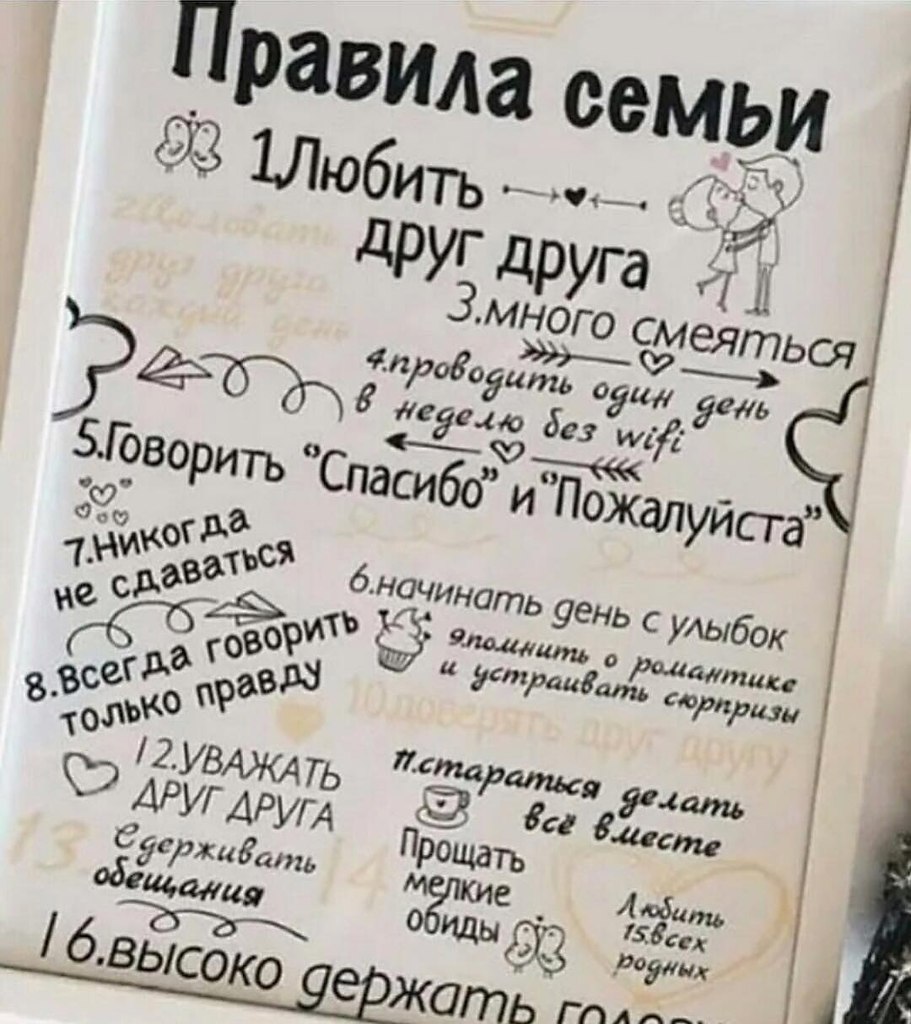 Правила семьи
1.Любить
друг друга
2.Целовать
друг друга
каждый день
3.много смеяться
4.проводить один день
в неделю без wifi
5.Говорить "Спасибо" и "Пожалуйста"
6.начинать день с улыбок
7.Никогда
не сдаваться
8.Всегда говорить
только правду
9.помнить о романтике
и устраивать сюрпризы
10.доверять друг другу
11.стараться делать
всё вместе
12.УВАЖАТЬ
ДРУГ ДРУГА
13
Сдерживать
обещания
14
Прощать
мелкие
обиды
Любить
15.всех
родных
16.высоко держать